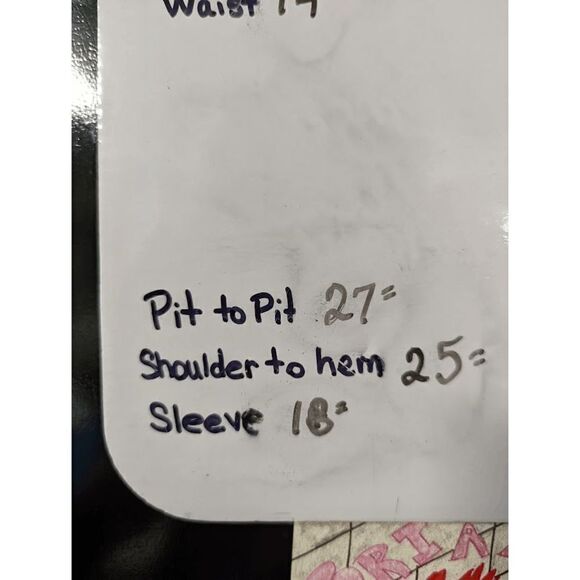 Waist
Pit to Pit 27"
Shoulder to hem 25"
Sleeve 18"